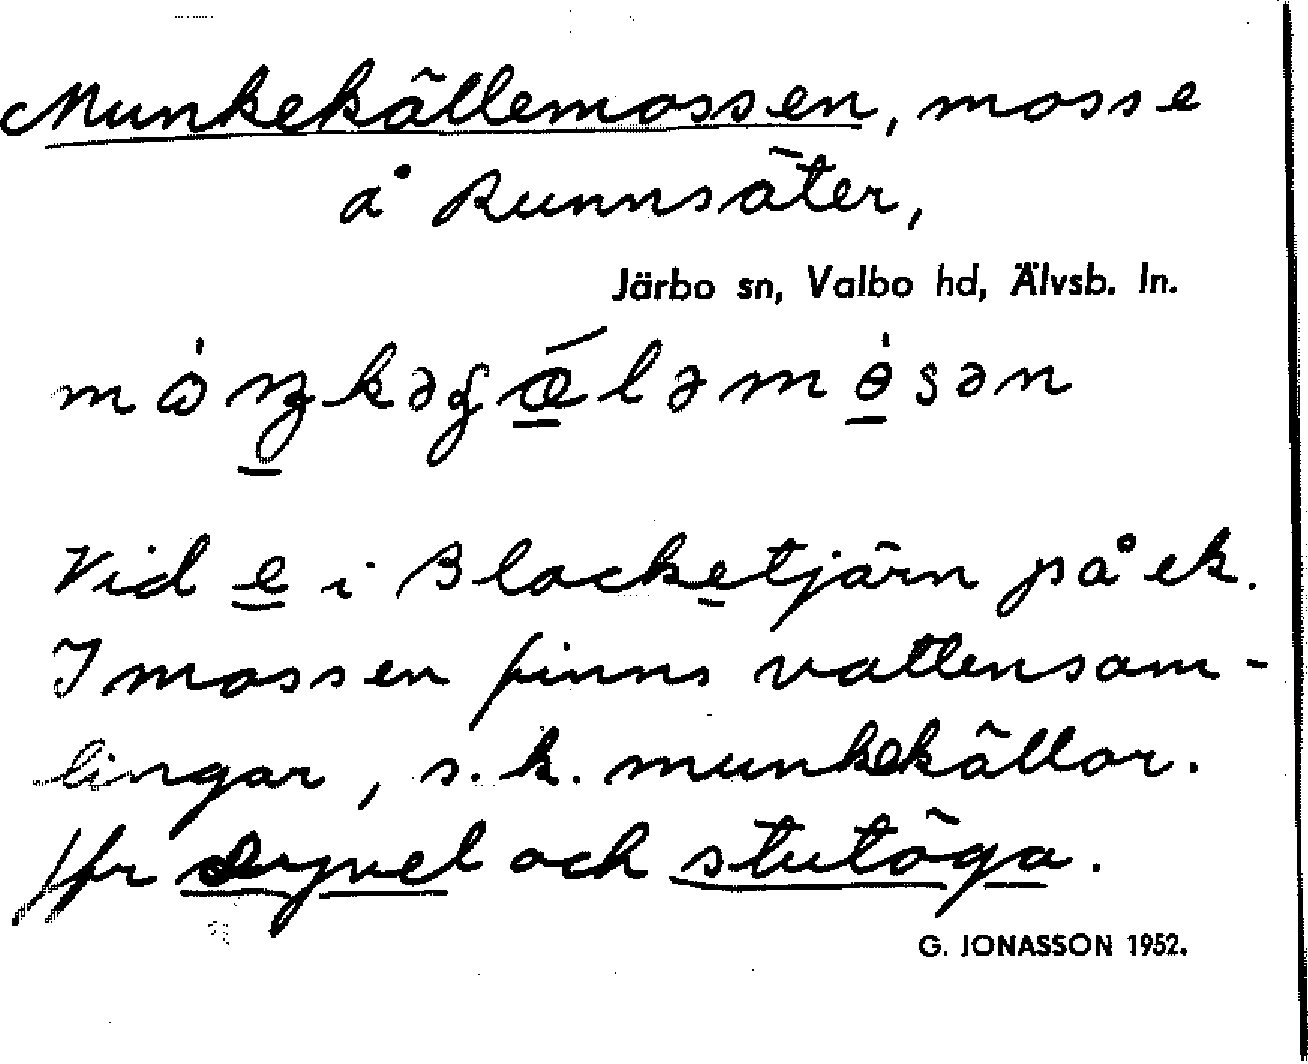 Munkekällemossen, mosse
å Runnsäter,
Järbo sn, Valbo hd, Älvsb. ln.
Vid e i Blacketjärn på ek.
I mossen finns vattensam-
lingar, s.k. munkekällor.
Jfr och stutöga.
G. JONASSON 1952.